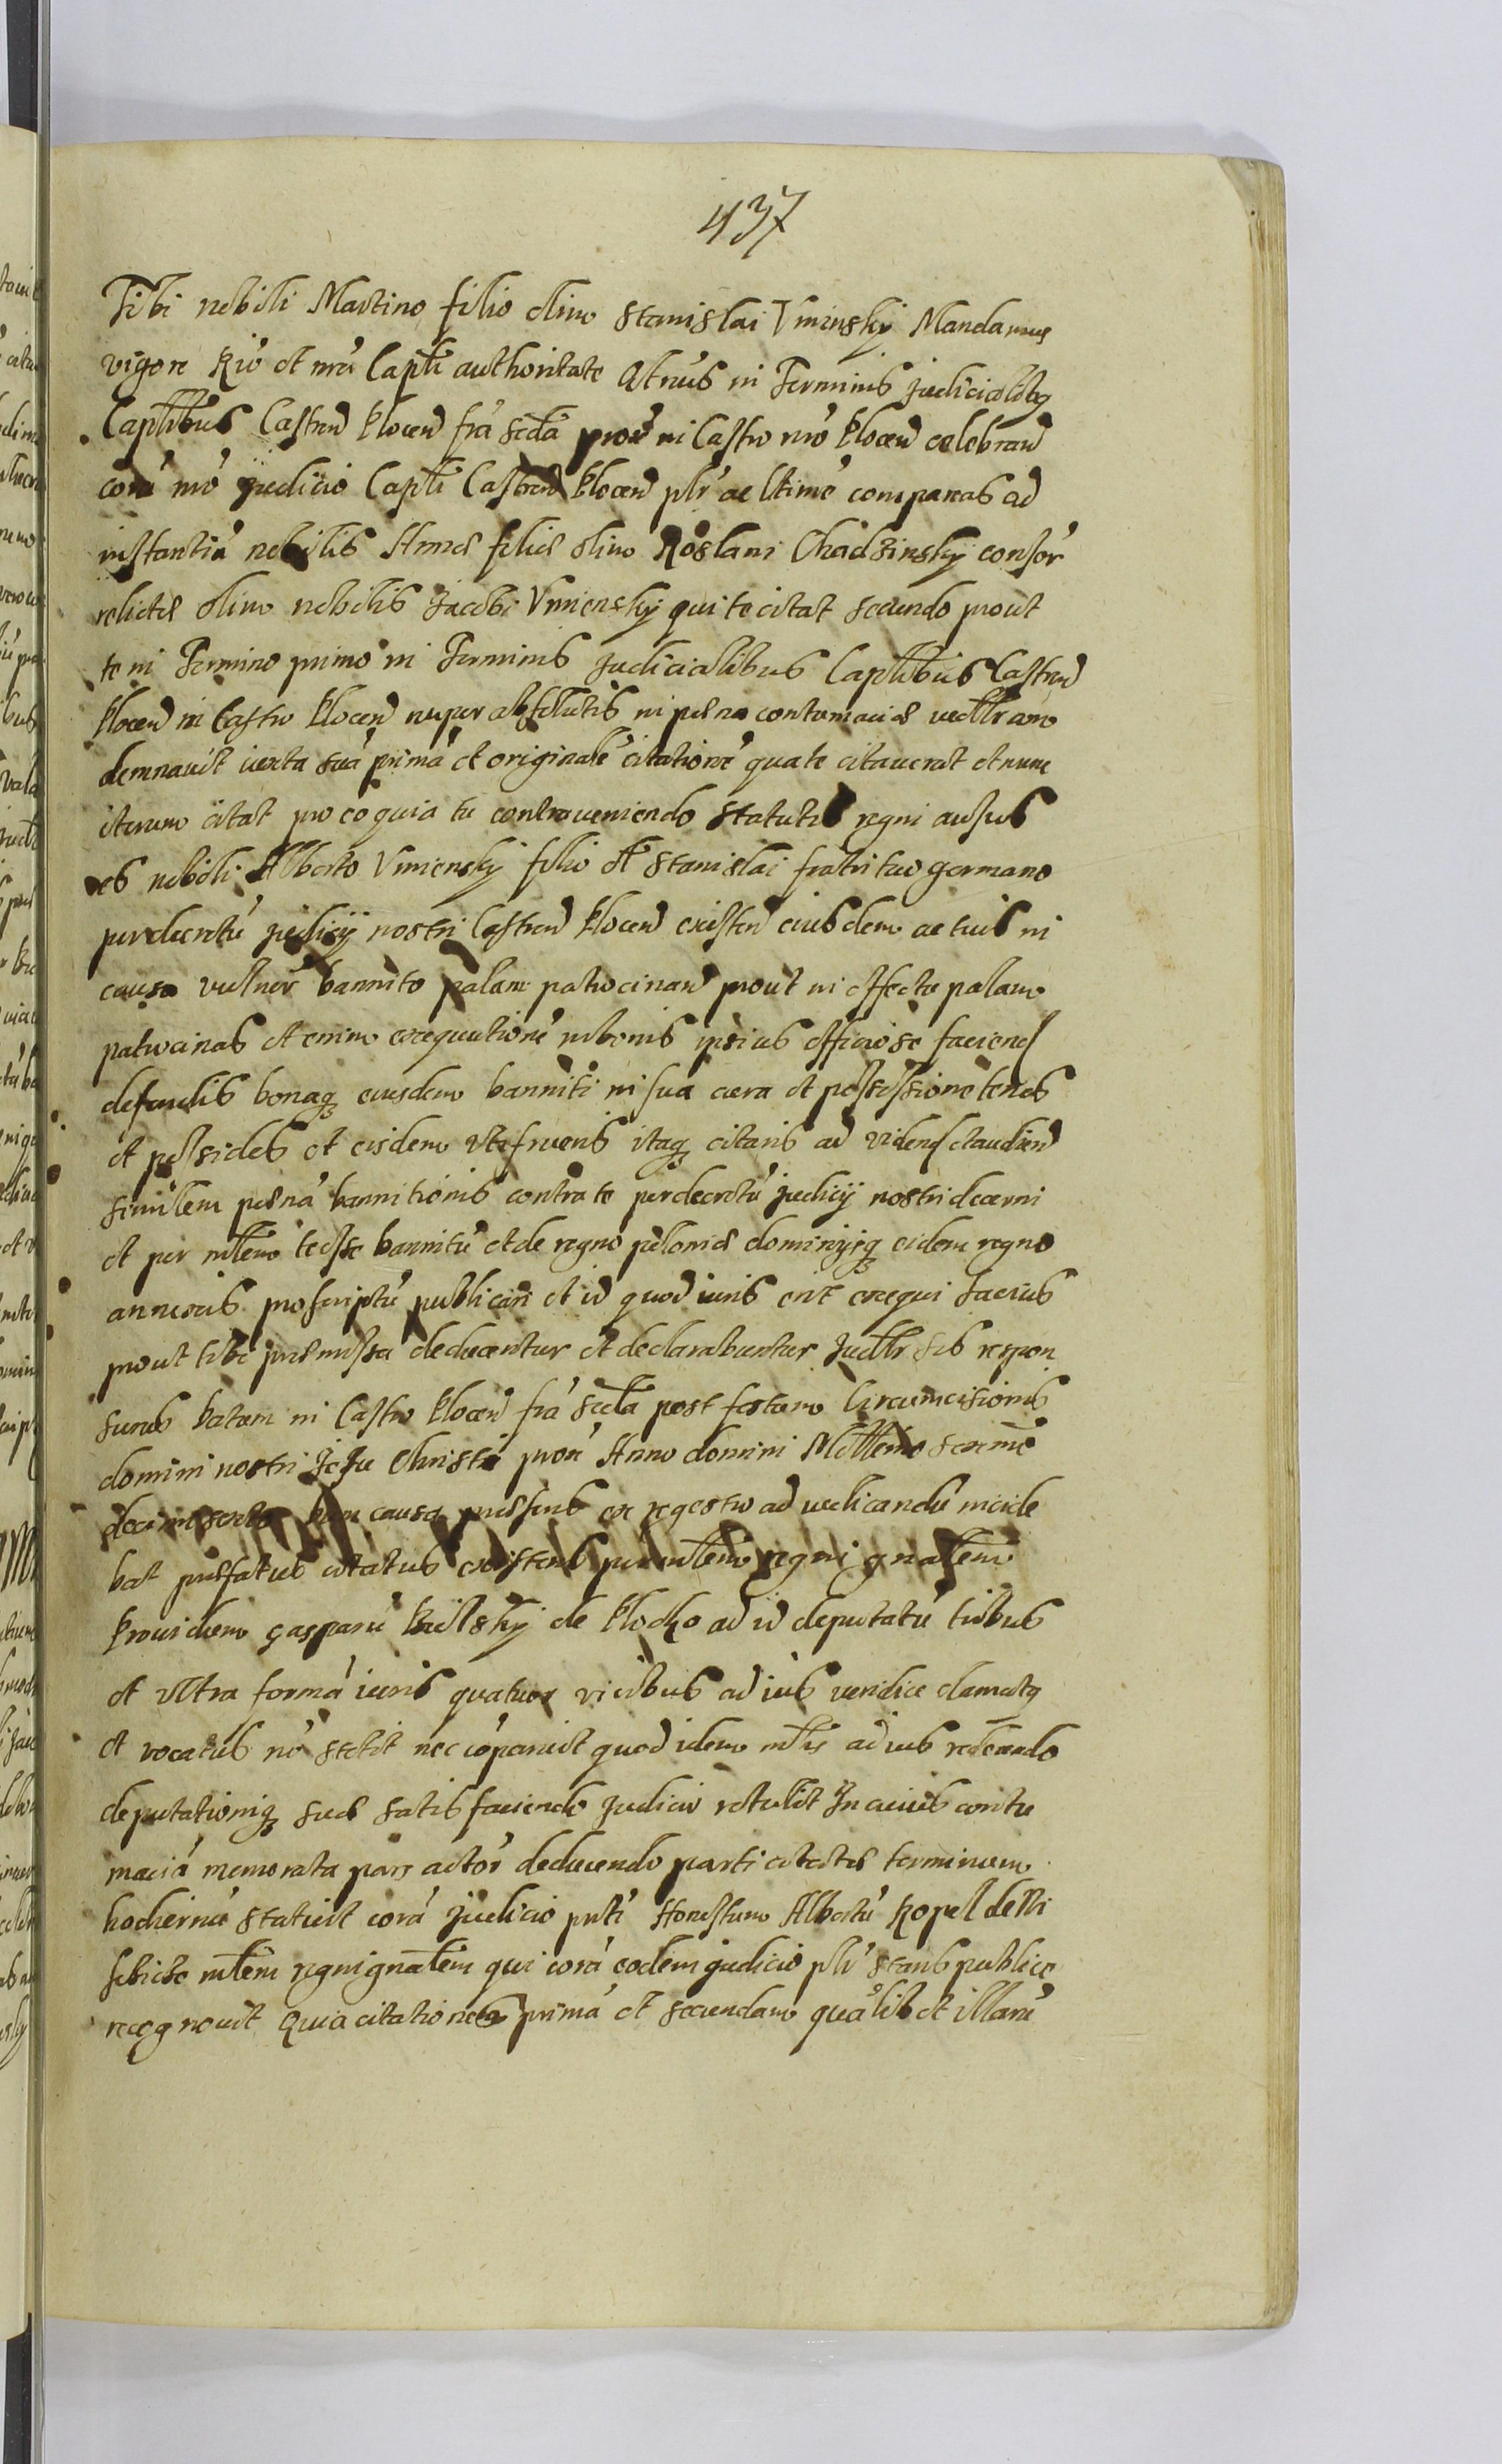 437
Tibi nobili Martino filio olim Stanislai Vminskij Mandamus
vigore Rió et nrá Captli authoritate Atnús in Terminis judicialibq
Captlibus Castren Plocen frá scda proxe in Castro nró Plocen celebran
corá nró judicio Captli Castren Plocen plr ac ltime compareas ad
instantiá nobilis Annæ filiæ olim Roslani Chadzinskij consor
relictæ olim nobilis Jacobi Vmienskij qui te citat secundo prout
te in Termino primo in Terminis Judicialibus Captlibus Castren
Plocen in Castro Plocen nuper absolutis in pæna contumaciæ iudlr con
demnauit iuxta suá primá et originalé citationé qua te citauerat et nunc
iterum citat pro eo quia tu contraueniendo statutis regni ausus
es nobili Alberto Vmienskij filio ol Stanislai fratri tuo germano
per decretú judicij nostri Castren Plocen existen eiusdem ac tuis in
causa vulner bannito palam patrocinare prout in effectu palam
patrocinas et enim exequutioné in bonis ipsius officiose faciend
defendis bonaq eiusdem banniti in sua cura et possessione tenes
et possides et eisdem utifruens itaq citaris ad videnď et audienď
similem pæná bannitionis contra te per decretú judicij nostri decerni
et per mtlem te esse bannitú et de regno poloniæ dominijsq eidem regno
annexis proscriptú publicari et id quod iuris erit exequi facius
prout tibi præmissa deducentur et declarabuntur Judlr sis respon
surus Datum in Castro Plocen frá scda post festum Circumcisionis
domini nostri Jesu Christi proxe Anno domini Millemo sexcmo
decimo sexto causa præsens ex regestro ad iudicandú incide
bat præfatus citatus existens per mtlem regni gnalem
Prouidum Gasparú Bielskij de Plocko ad id deputatú tribus
et vltra formá iuris quatuor vicibus ad ius veridice clamatq
et vocatus nó stetit nec cóparuit quod idem mtlis ad ius redeundo
deputationiq suæ satisfaciendo Judicio retulit In cuius contu
maciá memorata pars actor deducendo parti citatæ terminum
hodiernú statuit corá judicio pnti Honestum Albertú Kopel de
mtlem regni gnalem qui corá eodem judicio plr stans publice
recognouit Quia citationes primá et secundam quálibet illarú